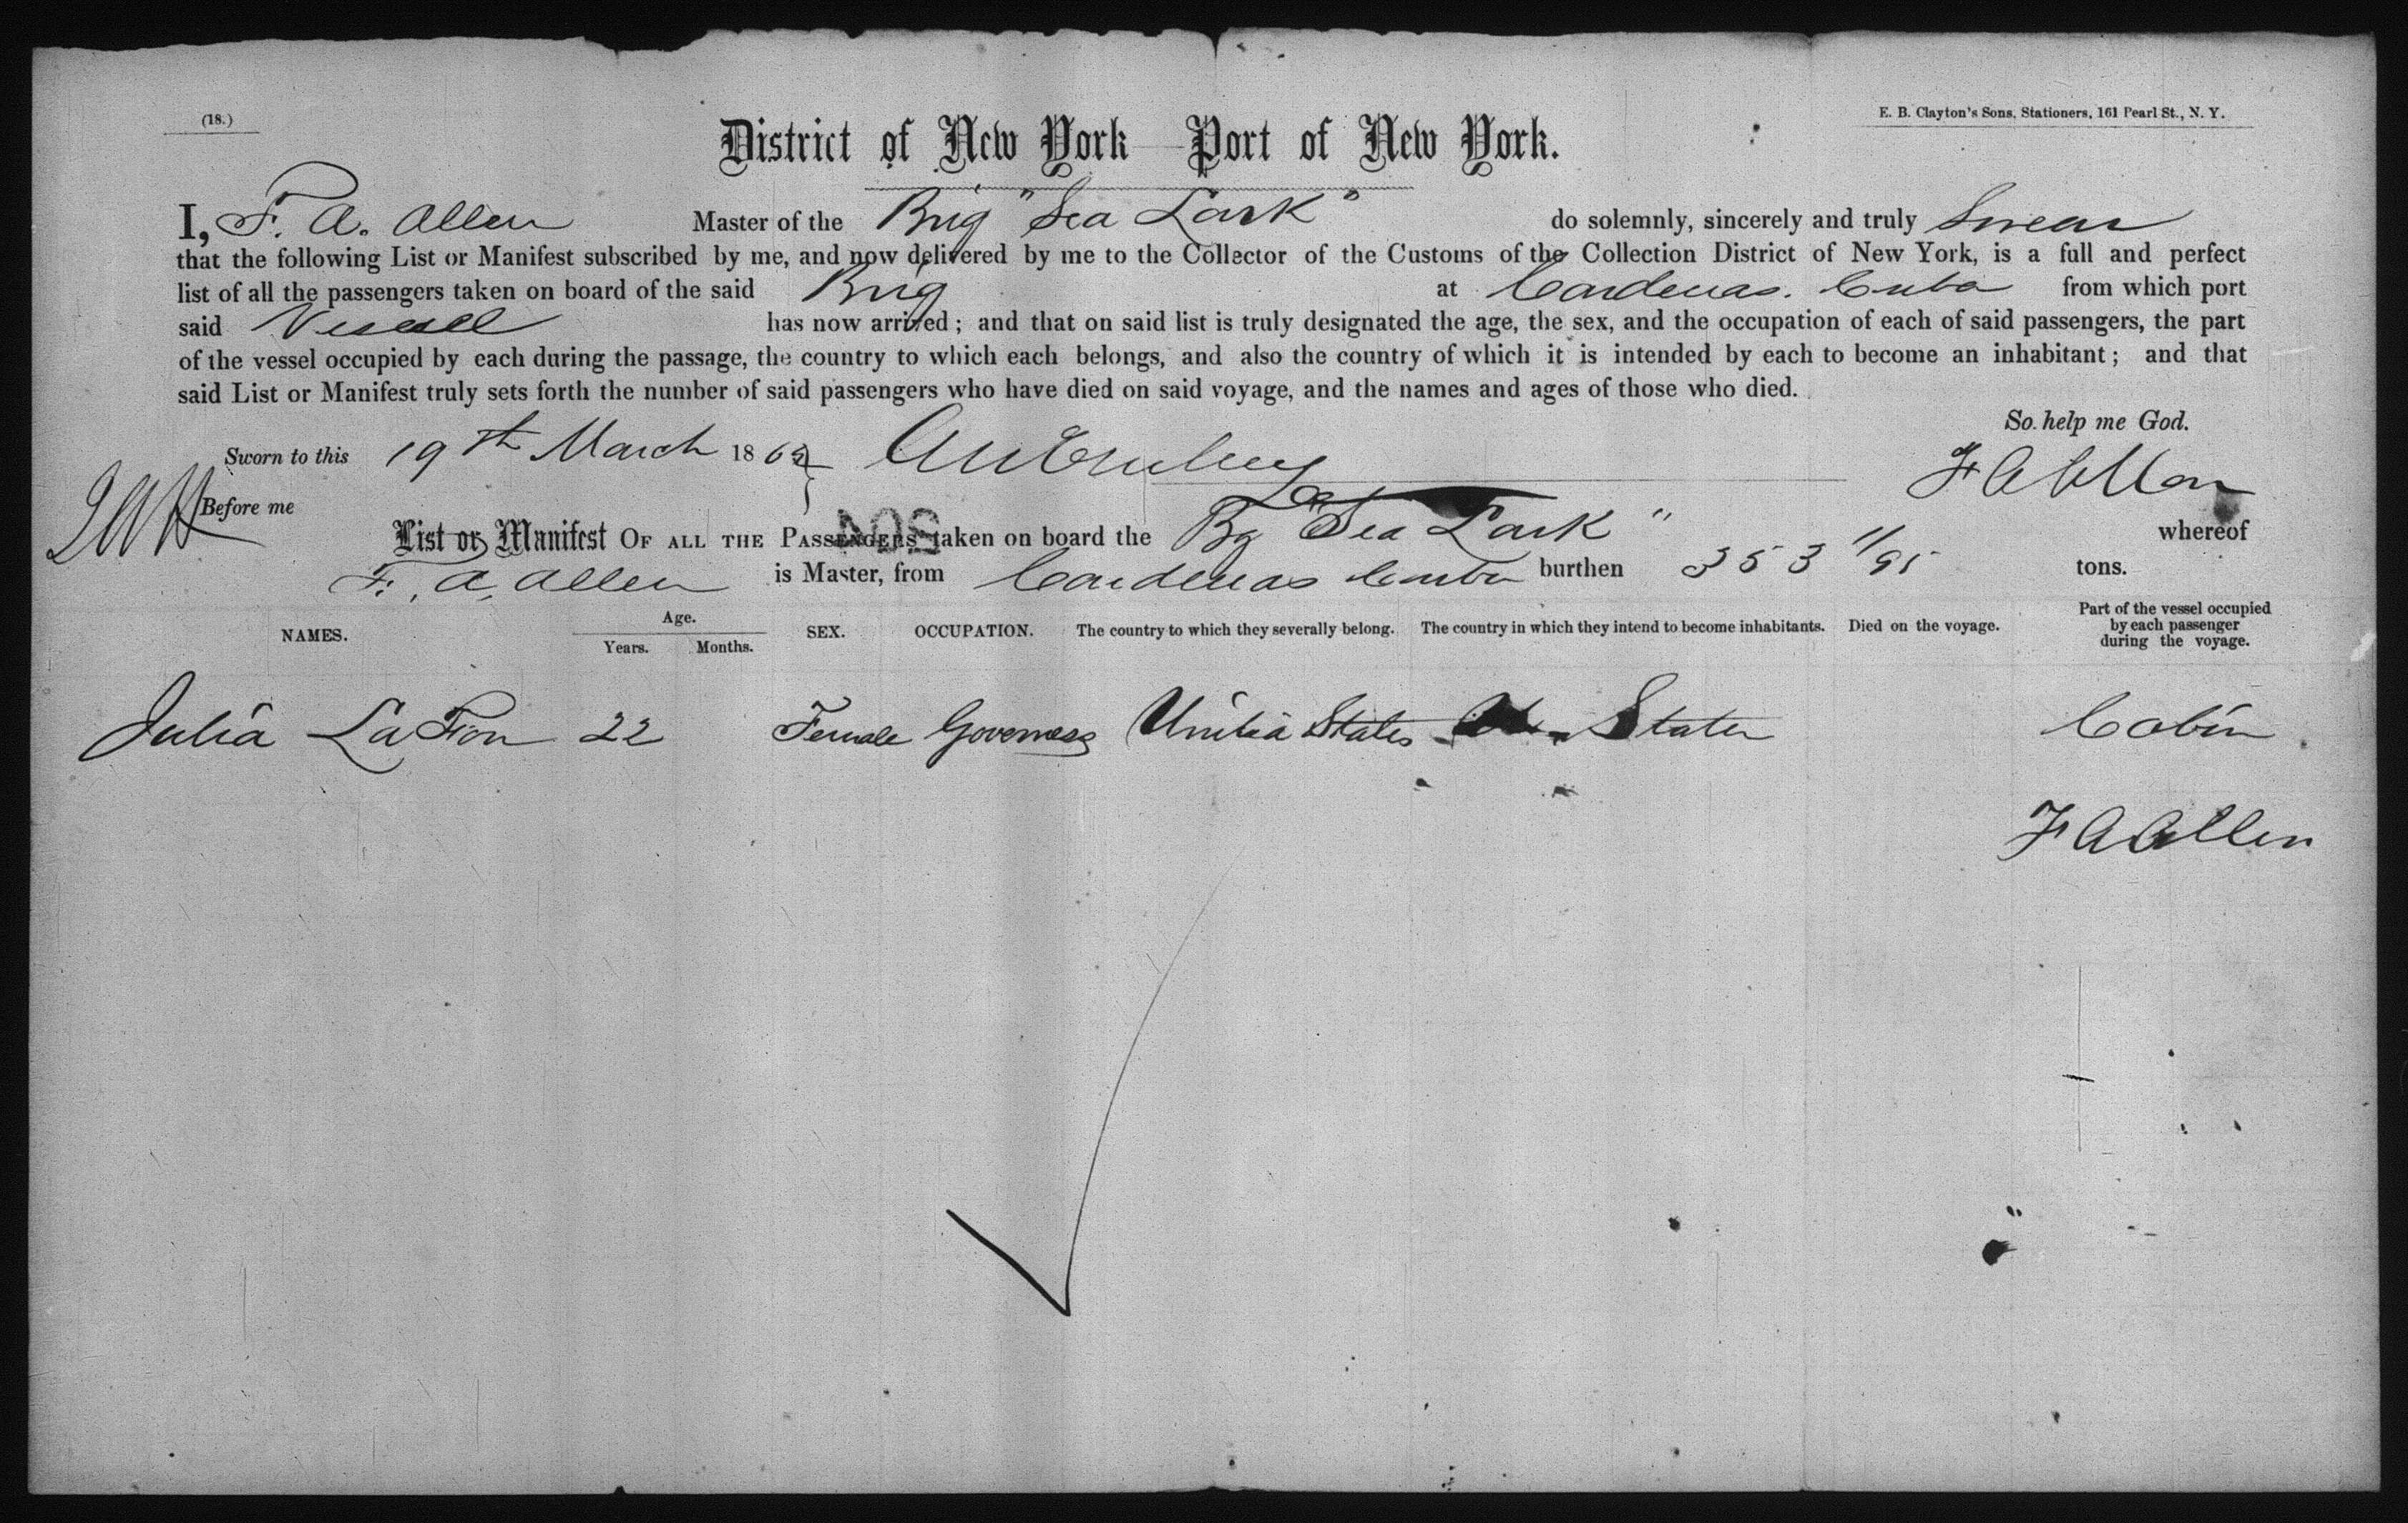 (18.)
E. B. Clayton's Sons, Stationers, 161 Pearl St., N. Y.
District of New York Port of New York.
I, F. A. Allen Master of the Brig "Sea Lark" do solemnly, sincerely and truly Swear
that the following List or Manifest subscribed by me, and now delivered by me to the Collector of the Customs of the Collection District of New York, is a full and perfect
list of all the passengers taken on board of the said Brig at Cardenas. Cuba from which port
said Vessell has now arrived; and that on said list is truly designated the age, the sex, and the occupation of each of said passengers, the part
of the vessel occupied by each during the passage, the country to which each belongs, and also the country of which it is intended by each to become an inhabitant; and that
said List or Manifest truly sets forth the number of said passengers who have died on said voyage, and the names and ages of those who died.
So help me God.
Sworn to this 19th March 186
F A Allen
Before me
List or Manifest OF ALL THE PASSENGERS taken on board the Bg "Sea Lark" whereof
F. A. Allen is Master, from Cardenas Cuba burthen 353 11/95 tons.
NAMES. Age. Years. Months. SEX. OCCUPATION. The country to which they severally belong. The country in which they intend to become inhabitants. Died on the voyage. Part of the vessel occupied by each passenger during the voyage.
Julia 22 Female Governess United States States Cabin
F A Allen